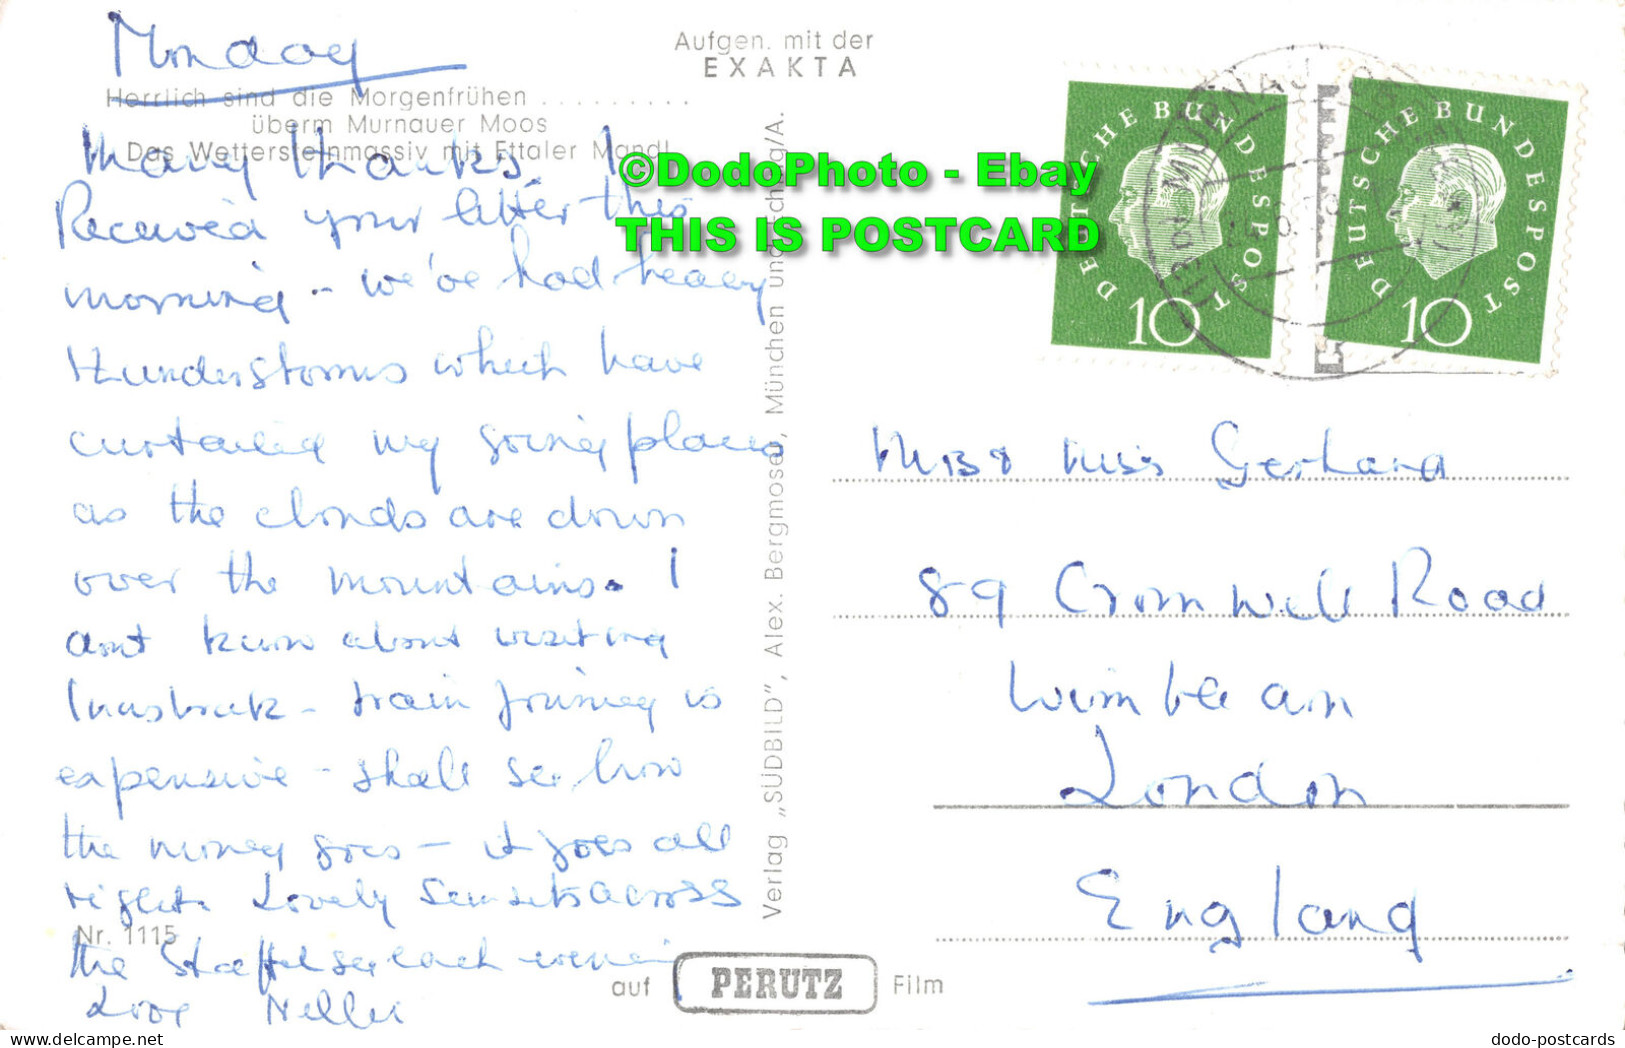 Monday
Aufgen. mit der
EXAKTA
Herrlich sind die Morgenfrühen ..........
überm Murnauer Moos
Das Wettersteinmassiv mit Ettaler Mandl
Many thanks, I
Received your letter this
morning - we've had heavy
thunderstorms which have
curtailed my going places
as the clouds are down
over the mountains. I
dont know about visiting
Innsbruck - train journey is
expensive - shall see how
the money goes - it goes all
right. Lovely Sunsets across
the Staffelsee each evening
Love Nellie
Nr. 1115
Verlag „SÜDBILD", Alex. Bergmoser, München und Eching/A.
auf PERUTZ Film
©DodoPhoto - Ebay
THIS IS POSTCARD
DEUTSCHE BUNDESPOST
10
DEUTSCHE BUNDESPOST
10
MURNAU
Miss Gerhard
89 Cromwell Road
Wimbledon
London
England
dodo-postcards